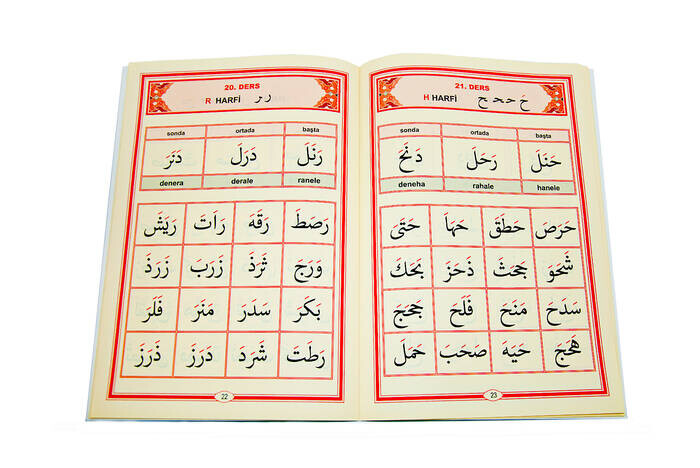 20. DERS
R HARFİ ر ر
sonda ortada başta
رَنَلَ دَرَلَ دَنَرَ
denera derale ranele
رَصَطَ رَقَهَ رَاتَ رَيَشَ
وَرَجَ ثَرَذَ زَرَبَ زَرَدَ
بَكَرَ سَدَرَ مَنَرَ فَلَرَ
رَطَتَ شَرَدَ دَرَزَ ذَرَزَ
22
21. DERS
H HARFİ حَ ححح
sonda ortada başta
حَنَلَ رَحَلَ دَنَحَ
deneha rahale hanele
حَرَصَ حَطَقَ حَهَا حَتَى
شَحَوَ جَحَثَ ذَحَزَ بَحَكَ
سَدَحَ مَنَحَ فَلَحَ جَحَجَ
هَحَجَ حَيَهَ صَحَبَ حَمَلَ
23